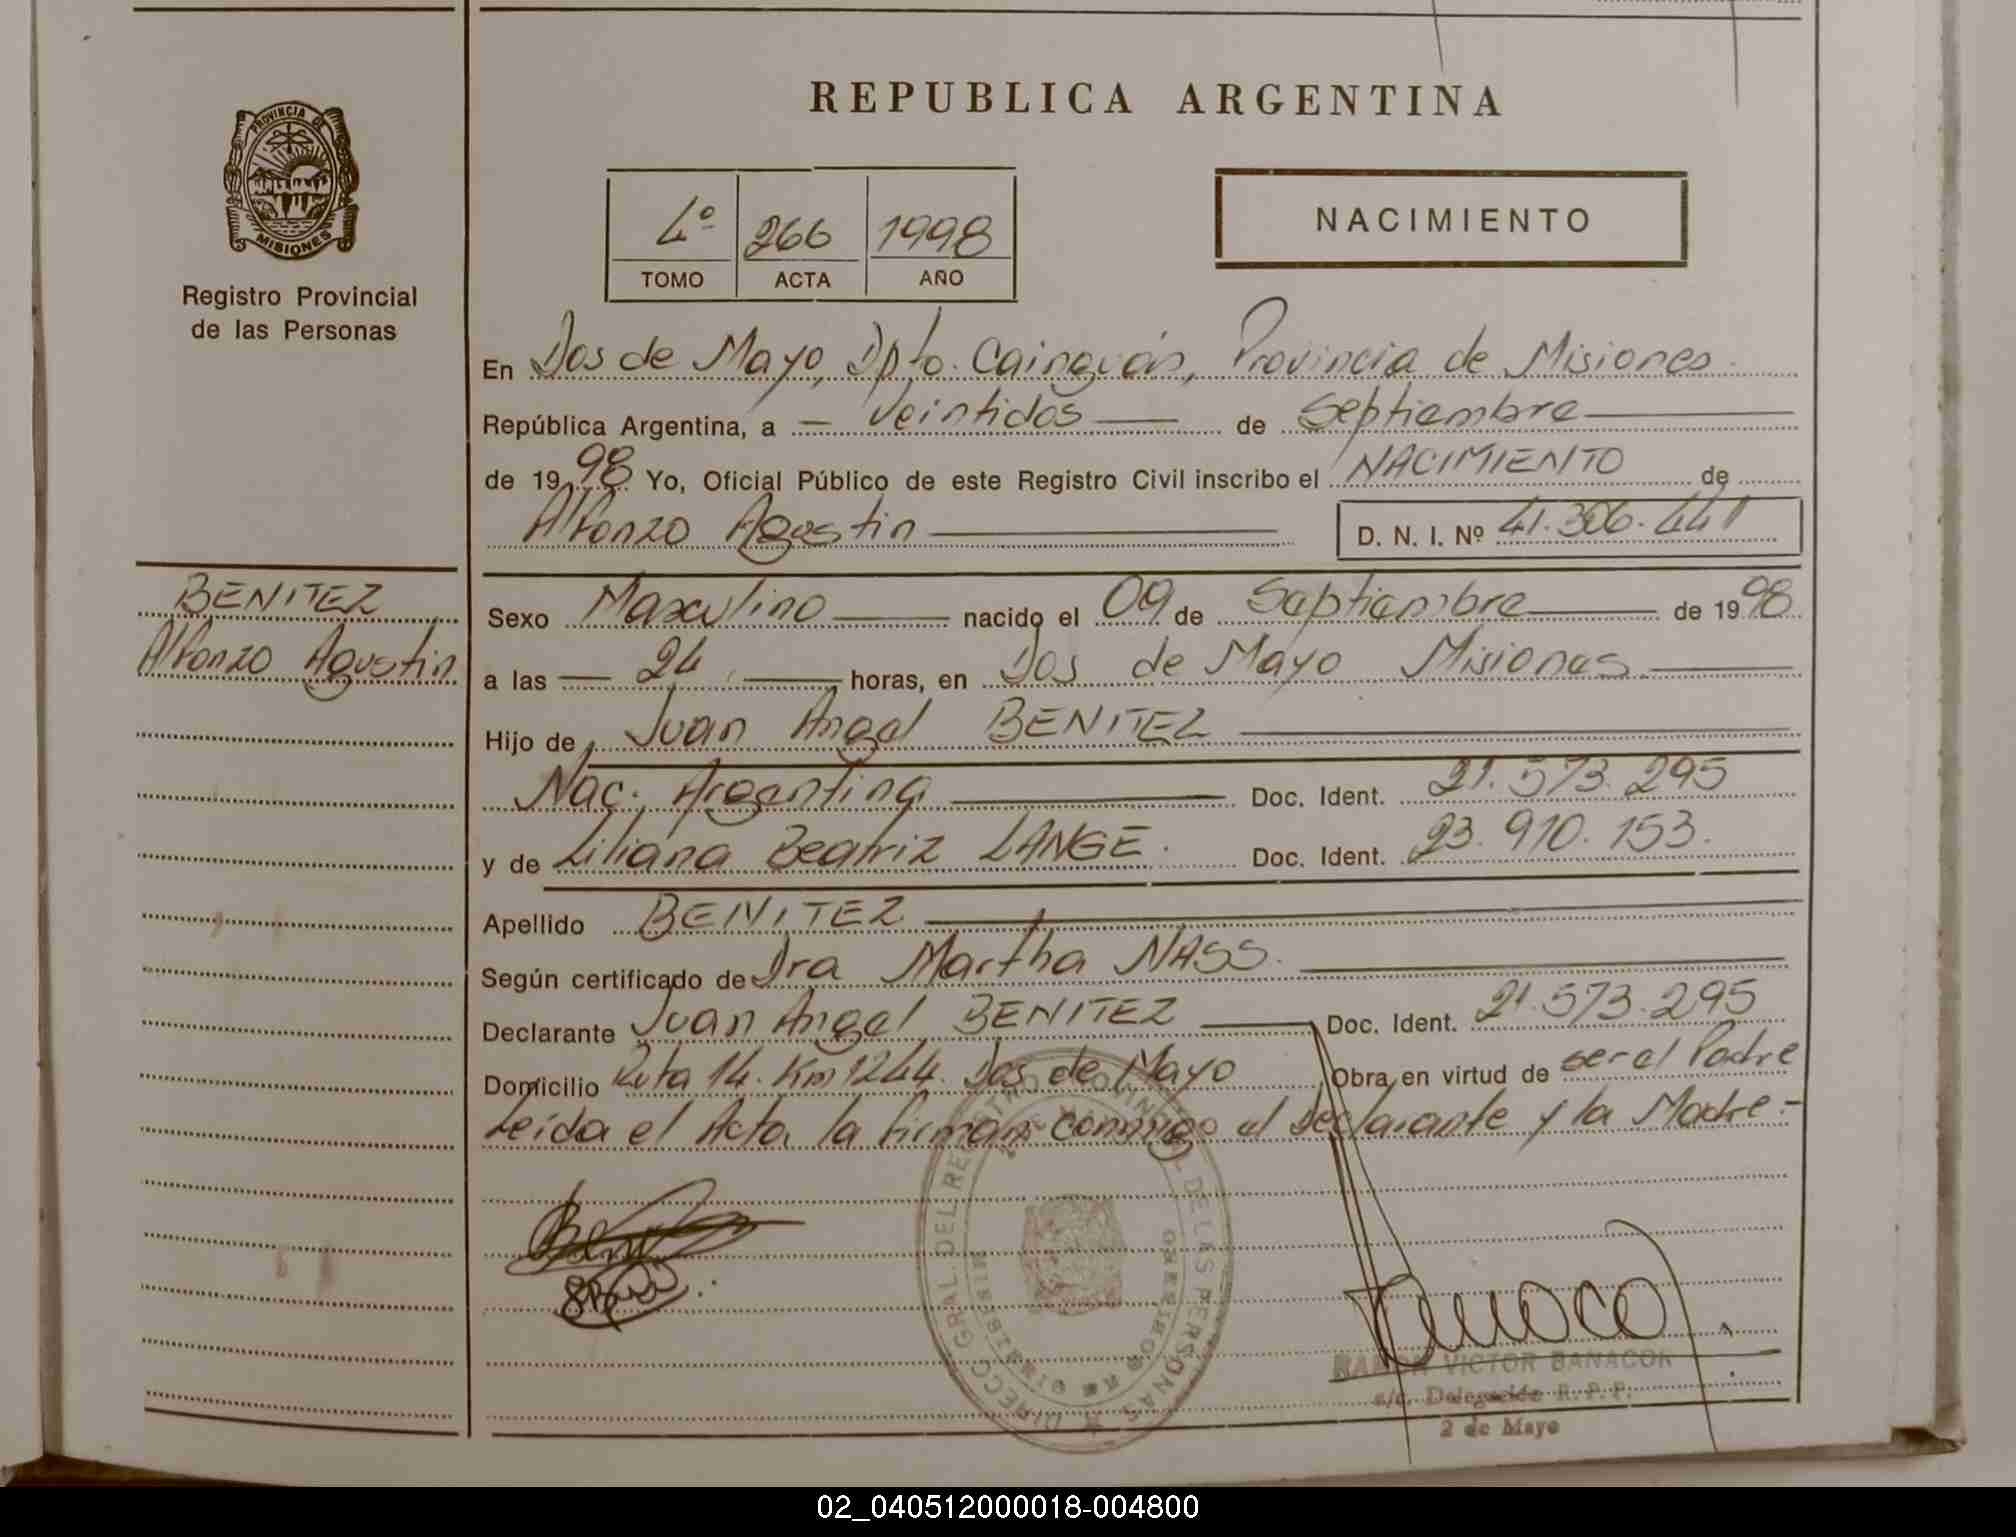 REPUBLICA ARGENTINA
PROVINCIA DE
MISIONES
Registro Provincial
de las Personas
4º 266 1998
TOMO ACTA AÑO
NACIMIENTO
En Dos de Mayo, Dpto. Cainguás, Provincia de Misiones
República Argentina, a — veintidos — de Septiembre
de 1998 Yo, Oficial Público de este Registro Civil inscribo el NACIMIENTO de
Alfonzo Agustin D. N. I. Nº 41.306.441
BENITEZ
Alfonzo Agustin
Sexo Masculino nacido el 09 de Septiembre de 1998
a las — 24 — horas, en Dos de Mayo Misiones.
Hijo de Juan Angel BENITEZ
Nac. Argentina Doc. Ident. 21.573.295
y de Liliana Beatriz LANGE. Doc. Ident. 23.910.153.
Apellido BENITEZ
Según certificado de Dra Martha NASS.
Declarante Juan Angel BENITEZ Doc. Ident. 21.573.295
Domicilio Ruta 14. Km 1244. Dos de Mayo Obra en virtud de ser el Padre
Leída el Acta, la firman conmigo el Declarante y la Madre.-
DIRECC. GRAL. DEL REGISTRO PROVINCIAL DE LAS PERSONAS
MISIONES
RAMON VICTOR BANACOR
a/c. Delegación R. P. P.
2 de Mayo
02_040512000018-004800